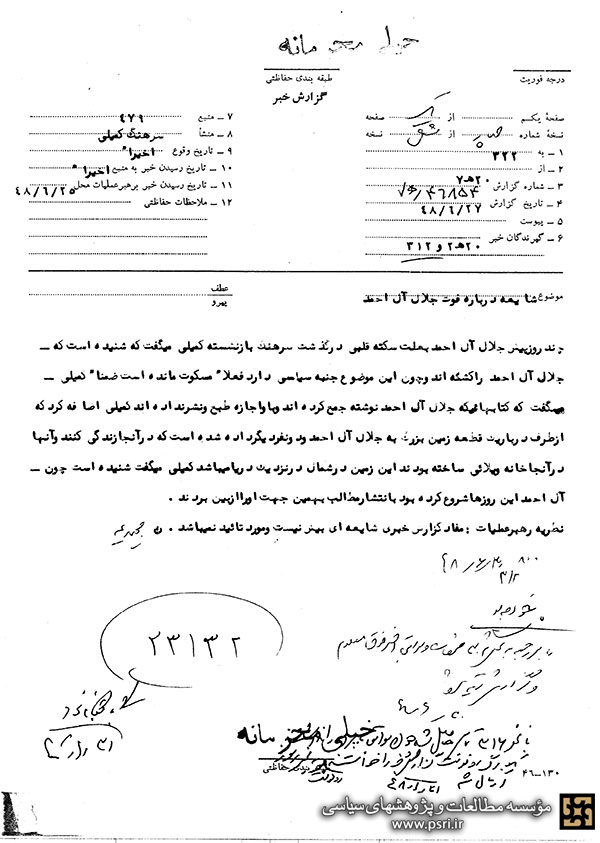 خیلی محرمانه
طبقه بندی حفاظتی
درجه فوریت
گزارش خبر
صفحهٔ یکم از یک صفحه
نسخهٔ شماره از شش نسخه
۱ ـ به ۳۲۲
۲ ـ از ۲۰هـ۷
۳ ـ شماره گزارش ۴۶۸۵۴/۲۰هـ۷
۴ ـ تاریخ گزارش ۴۸/۶/۲۷
۵ ـ پیوست
۶ ـ گیرندگان خبر ۲۰هـ۲ و ۳۱۲
۷ ـ منبع ۴۷۹
۸ ـ منشأ سرهنگ کمیلی
۹ ـ تاریخ وقوع اخیرا"
۱۰ ـ تاریخ رسیدن خبر به منبع اخیرا"
۱۱ ـ تاریخ رسیدن خبر برهبر عملیات محل ۴۸/۶/۲۵
۱۲ ـ ملاحظات حفاظتی
موضوع شایعه درباره فوت جلال آل احمد
عطف
پیرو
چند روز پیش جلال آل احمد بعلت سکته قلبی درگذشت سرهنگ بازنشسته کمیلی میگفت که شنیده است که ـ
جلال آل احمد راکشته اند وچون این موضوع جنبه سیاسی دارد فعلا" مسکوت مانده است ضمنا" کمیلی ـ
میگفت که کتابهائیکه جلال آل احمد نوشته جمع کرده اند وباو اجازه طبع ونشرنداده اند کمیلی اضافه کرد که
ازطرف دربار یک قطعه زمین بزرگ به جلال آل احمد ودونفردیگر داده شده است که درآنجا زندگی کنند وآنها
درآنجا خانه ویلائی ساخته بودند این زمین درشمال درنزدیک دریا میباشد کمیلی میگفت شنیده است چون ـ
آل احمد این روزها شروع کرده بود بانتشار مطالب بهمین جهت اورا ازبین بردند .
نظریه رهبرعملیات : مفاد گزارش خبری شایعه ای بیش نیست ومورد تائید نمیباشد .
۸۰۰
۳۱۲
۲۳۱۳۲
بایگانی شود
خیلی محرمانه
طبقه بندی حفاظتی
۴۶ـ۱۳۰
مؤسسه مطالعات و پژوهشهای سیاسی
www.psri.ir